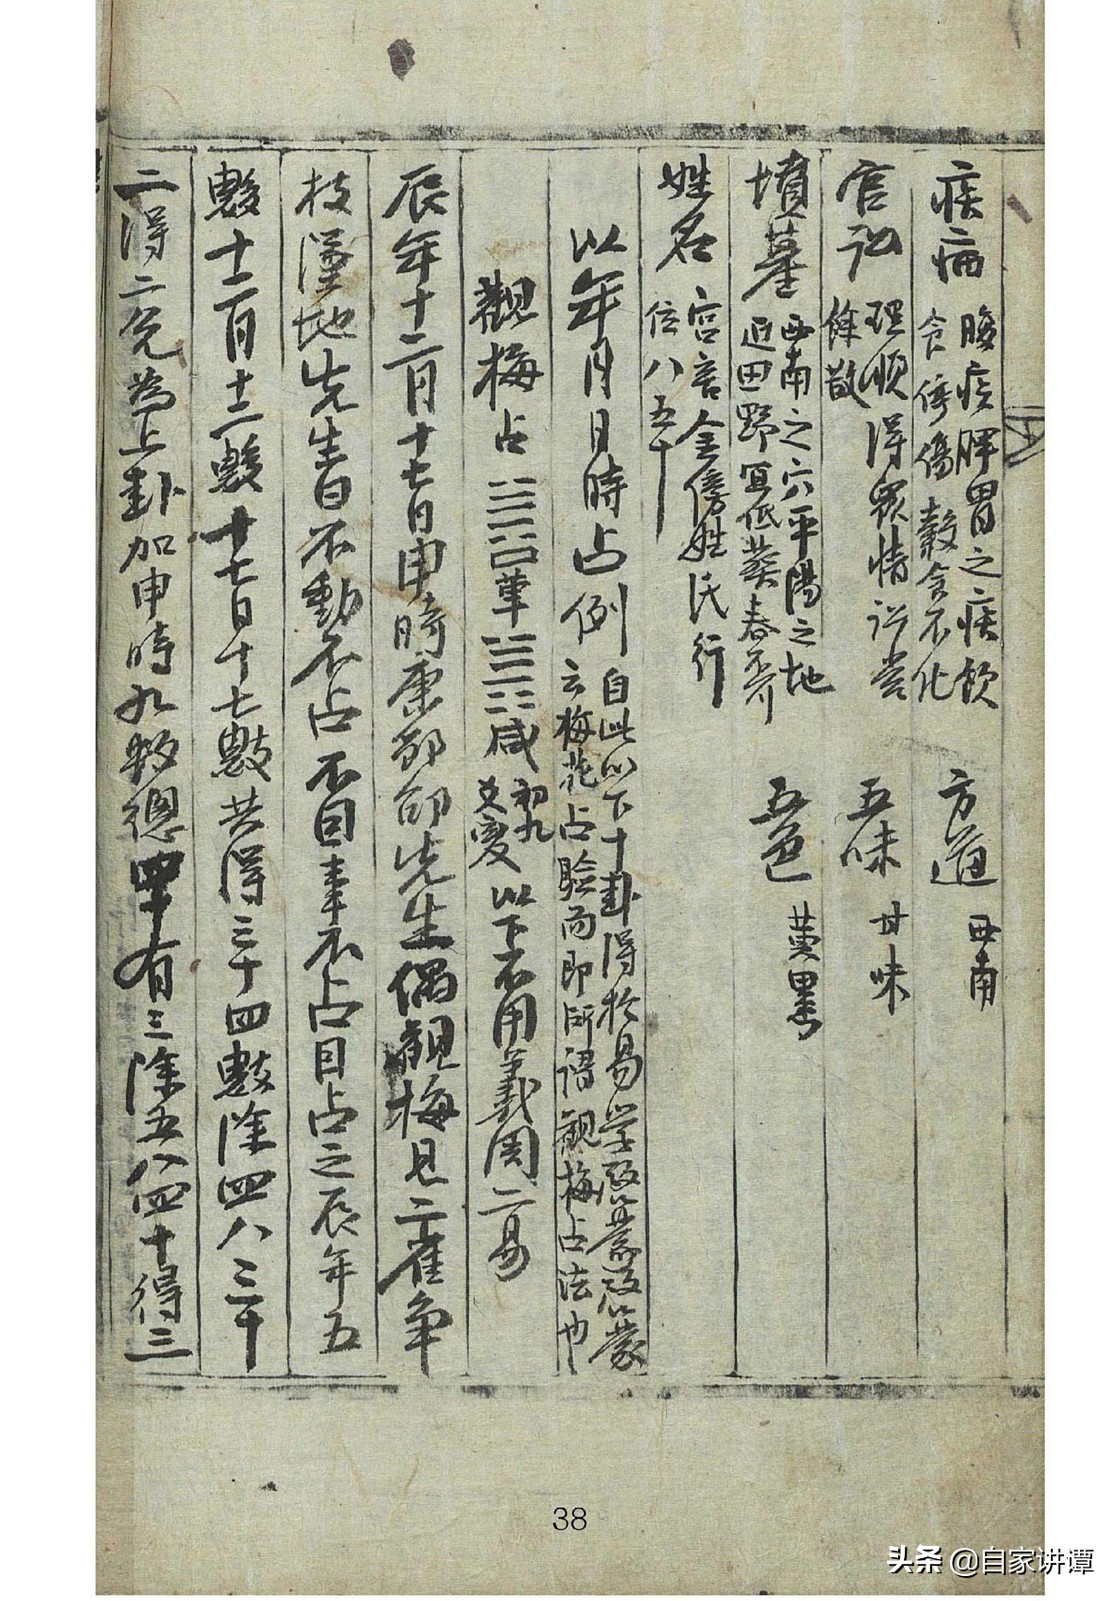 疾病 腹疾脾胃之疾飲
食停傷穀食不化 方道 西南
官訟 理順得眾情訟當
解散 五味 甘味
墳墓 西南之穴平陽之地
近田野宜低葬春不可 五色 黃黑
姓名 宮音金傍姓氏行
位八五十
以年月日時占例 自此以下十卦得於易学啟蒙啟蒙
云梅花占驗而即所謂觀梅占法也
觀梅占 革 咸 初九
爻變 以下不用羲周二易
辰年十二月十七日申時康邵節先生偶觀梅見二雀爭
枝墜地先生曰不動不占不因事不占因占之辰年五
數十二月十二數十七日十七數共得三十四數除四八三十
二得二兌為上卦加申時九數總四十有三除五八四十得三
38
头条 @自家讲谭